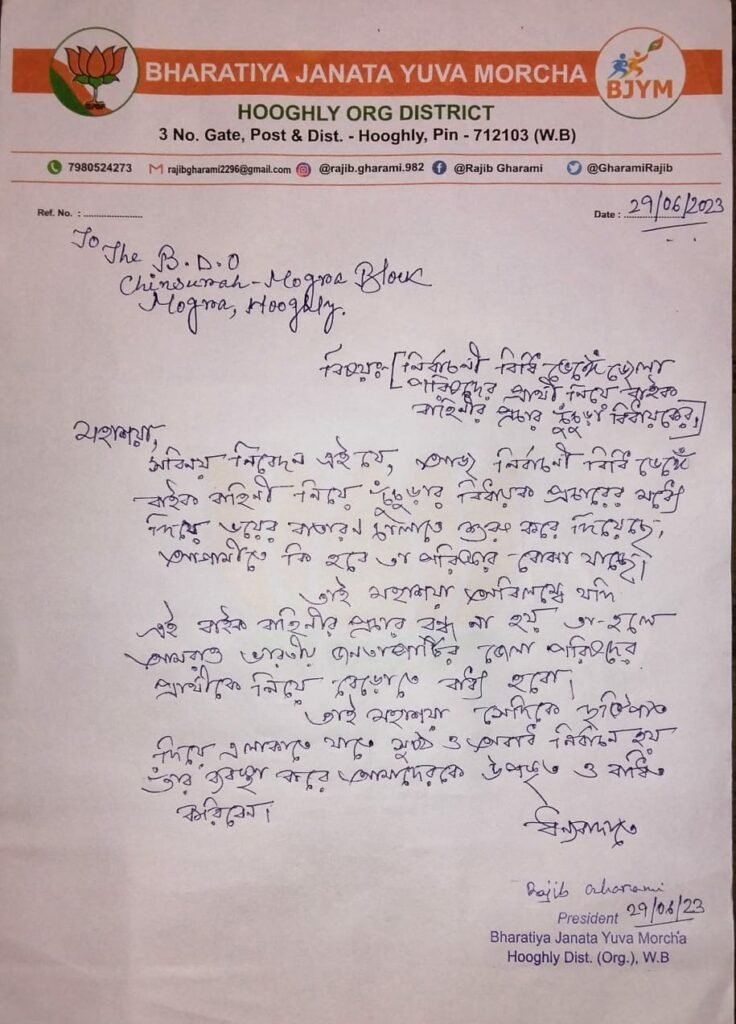 BHARATIYA JANATA YUVA MORCHA
BJP
BJYM
HOOGHLY ORG DISTRICT
3 No. Gate, Post & Dist. - Hooghly, Pin - 712103 (W.B)
7980524273 rajibgharami2296@gmail.com @rajib.gharami.982 @Rajib Gharami @GharamiRajib
Ref. No. : ..................... Date : 29/06/2023
To
The B.D.O
Chinsurah-Mogra Block
Mogra, Hooghly.
বিষয়ঃ- [নির্বাচনী বিধি ভেঙ্গে জেলা
পরিষদের প্রার্থী নিয়ে বাইক
বাহিনীর প্রচার চুঁচুড়া বিধায়কের]
মহাশয়া,
সবিনয় নিবেদন এই যে, আজ নির্বাচনী বিধি ভেঙ্গে
বাইক বাহিনী নিয়ে চুঁচুড়ার বিধায়ক প্রচারের মধ্যে
দিয়ে ভয়ের বাতারণ চালাতে শুরু করে দিয়েছে,
আগামীতে কি হবে তা পরিষ্কার বোঝা যাচ্ছে।
তাই মহাশয়া অবিলম্বে যদি
এই বাইক বাহিনীর প্রচার বন্ধ না হয় তা-হলে
আমরাও ভারতীয় জনতাপার্টির জেলা পরিষদের
প্রার্থীকে নিয়ে বেড়োতে বাধ্য হবো।
তাই মহাশয়া সেদিকে দৃষ্টিপাত
দিয়ে এলাকাতে যাতে সুষ্ঠ ও অবাধ নির্বাচন হয়
তাঁর ব্যবস্থা করে আমাদেরকে উপকৃত ও বাধিত
করিবেন।
ধন্যবাদান্তে
Rajib Gharami
29/06/23
President
Bharatiya Janata Yuva Morcha
Hooghly Dist. (Org.), W.B